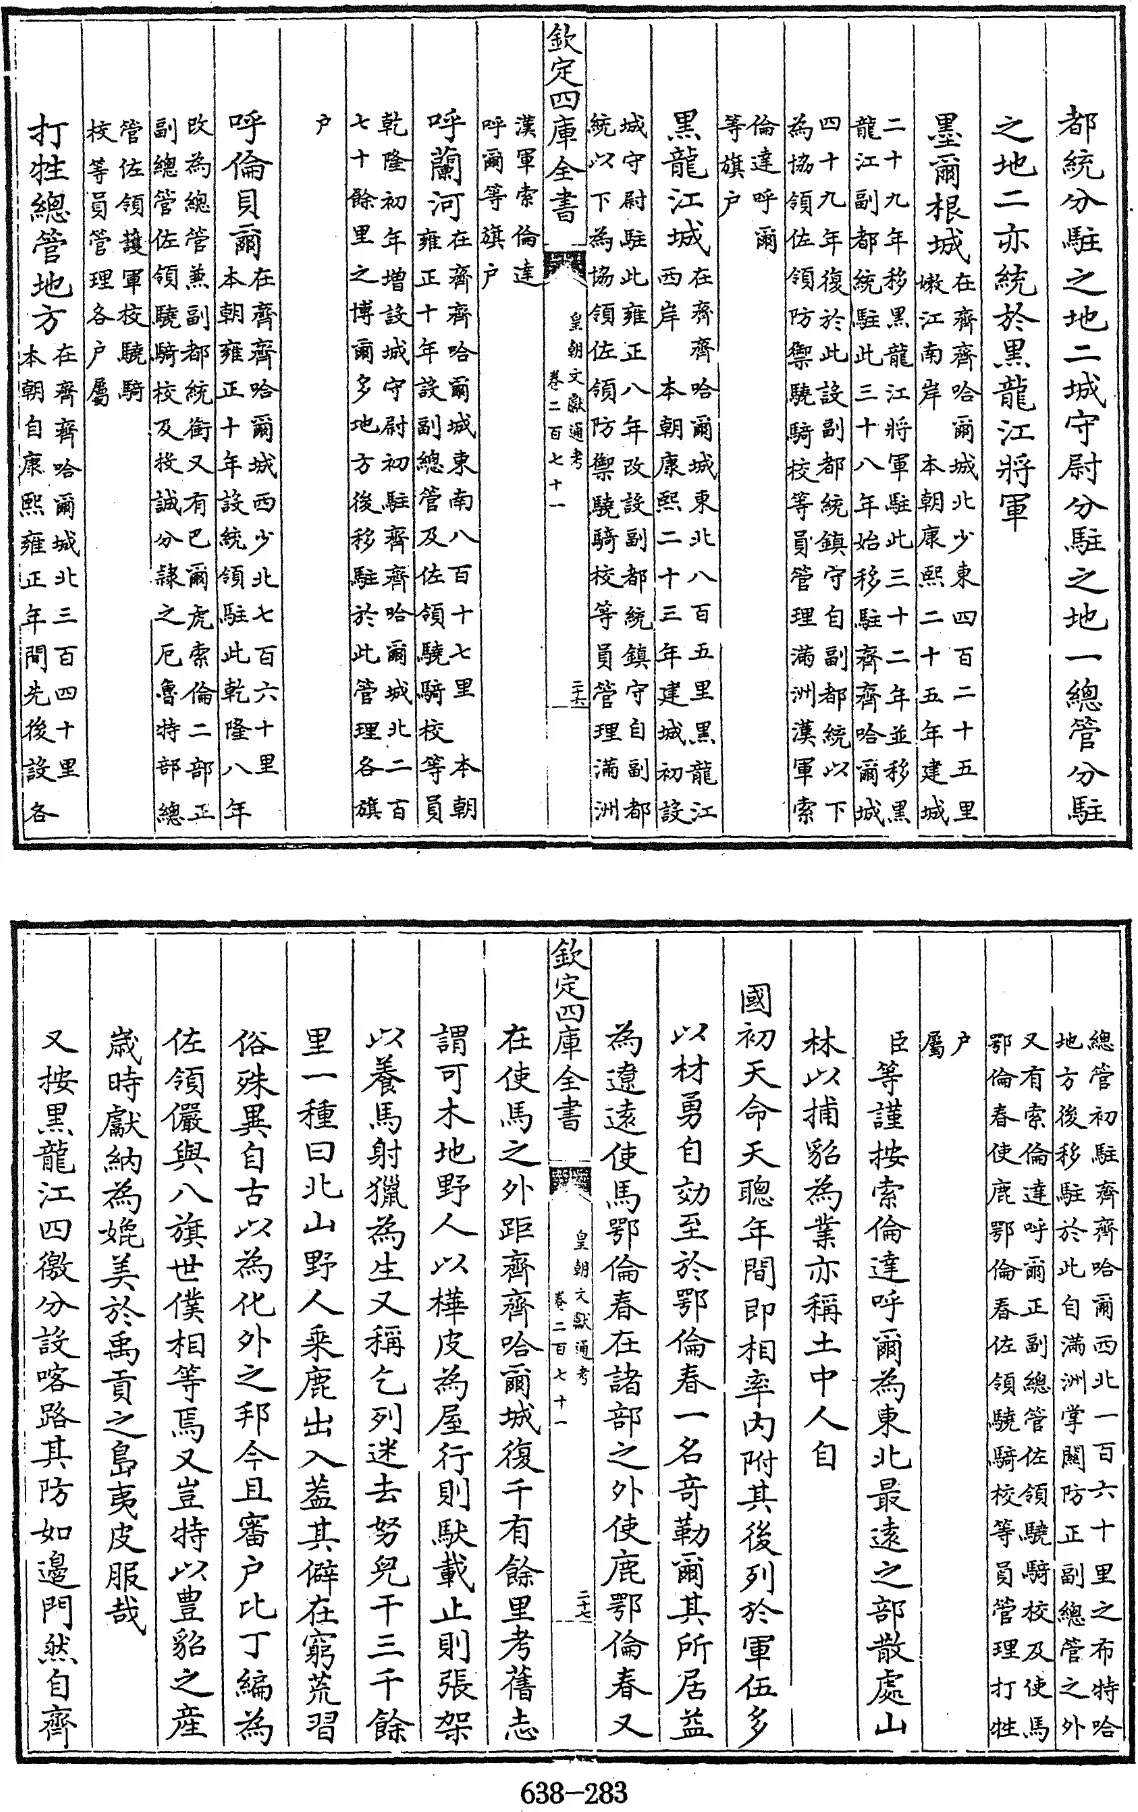 都統分駐之地二城守尉分駐之地一總管分駐
之地二亦統於黑龍江將軍
墨爾根城在齊齊哈爾城北少東四百二十五里
嫩江南岸 本朝康熙二十五年建城
二十九年移黑龍江將軍駐此三十二年並移黑
龍江副都統駐此三十八年始移駐齊齊哈爾城
四十九年復於此設副都統鎮守自副都統以下
為協領佐領防禦驍騎校等員管理滿洲漢軍索
倫達呼爾
等旗户
黑龍江城在齊齊哈爾城東北八百五里黑龍江
西岸 本朝康熙二十三年建城初設
城守尉駐此雍正八年改設副都統鎮守自副都
統以下為協領佐領防禦驍騎校等員管理滿洲
欽定四庫全書
皇朝文獻通考
卷二百七十一
二十六
漢軍索倫達
呼爾等旗户
呼蘭河在齊齊哈爾城東南八百十七里 本朝
雍正十年設副總管及佐領驍騎校等員
乾隆初年增設城守尉初駐齊齊哈爾城北二百
七十餘里之博爾多地方後移駐於此管理各旗
户
呼倫貝爾在齊齊哈爾城西少北七百六十里
本朝雍正十年設統領駐此乾隆八年
改為總管兼副都統銜又有巴爾虎索倫二部正
副總管佐領驍騎校及投誠分隸之厄魯特部總
管佐領護軍校驍騎
校等員管理各户屬
打牲總管地方在齊齊哈爾城北三百四十里
本朝自康熙雍正年間先後設各
總管初駐齊齊哈爾西北一百六十里之布特哈
地方後移駐於此自滿洲掌關防正副總管之外
又有索倫達呼爾正副總管佐領驍騎校及使馬
鄂倫春使鹿鄂倫春佐領驍騎校等員管理打牲
户
屬
臣等謹按索倫達呼爾為東北最遠之部散處山
林以捕貂為業亦稱土中人自
國初天命天聰年間即相率内附其後列於軍伍多
以材勇自効至於鄂倫春一名奇勒爾其所居益
為遼遠使馬鄂倫春在諸部之外使鹿鄂倫春又
欽定四庫全書
皇朝文獻通考
卷二百七十一
二十七
在使馬之外距齊齊哈爾城復千有餘里考舊志
謂可木地野人以樺皮為屋行則馱載止則張架
以養馬射獵為生又稱乞列迷去努兒干三千餘
里一種曰北山野人乘鹿出入蓋其僻在窮荒習
俗殊異自古以為化外之邦今且審户比丁編為
佐領儼與八旗世僕相等焉又豈特以豊貂之產
歲時獻納為媲美於禹貢之島夷皮服哉
又按黑龍江四徼分設喀路其防如邊門然自齊
638-283